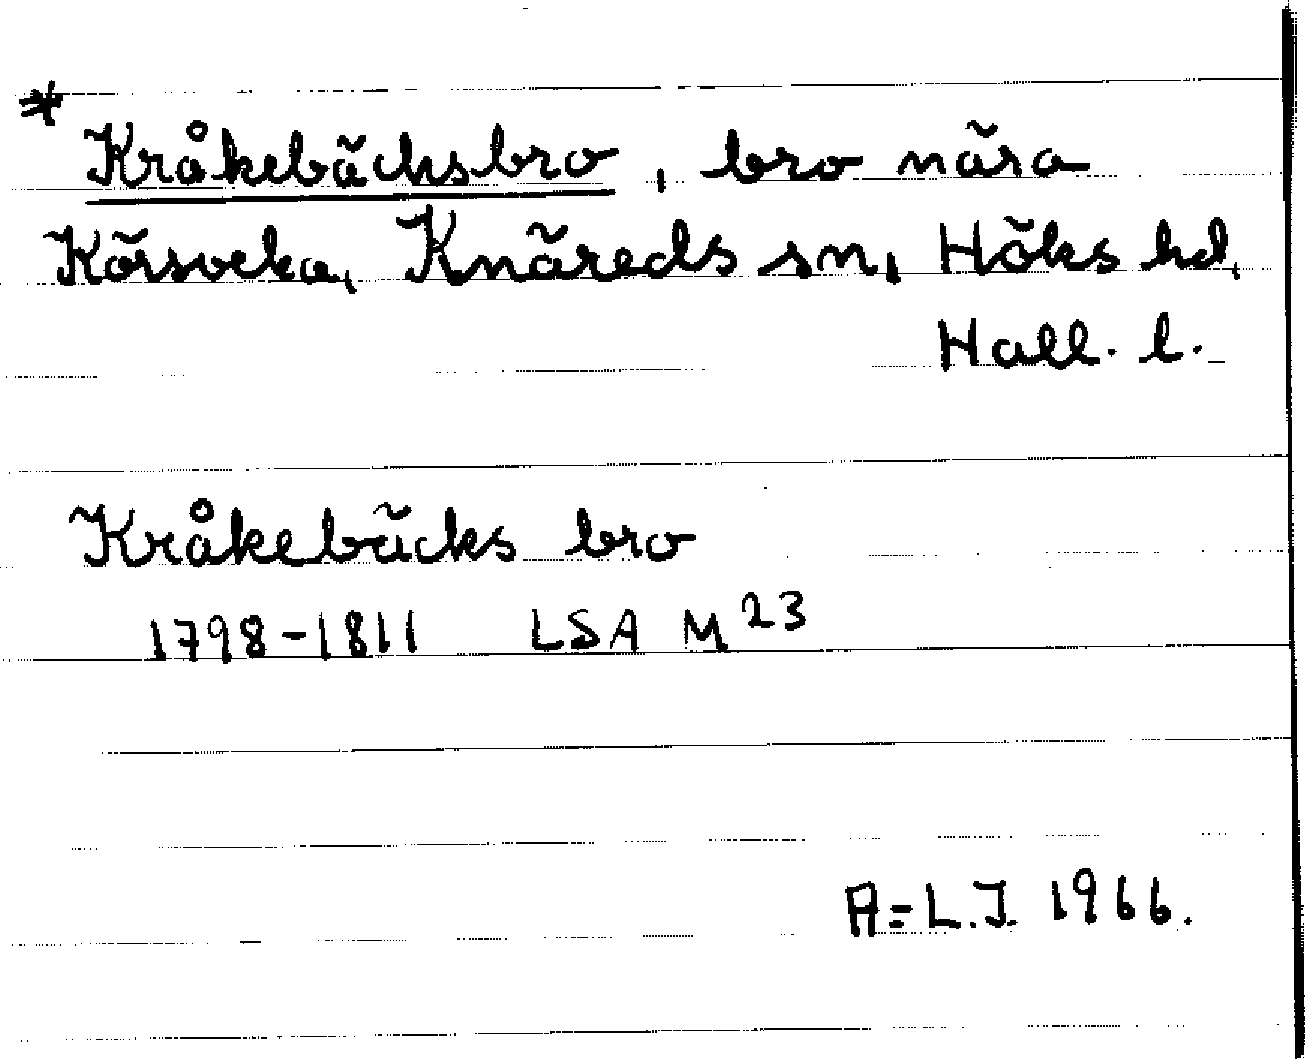 * Kråkebäcksbro, bro nära
Körsveka, Knäreds sn, Höks hd,
Hall. l.
Kråkebäcks bro
1798-1811 LSA M 23
A=L.J. 1966.